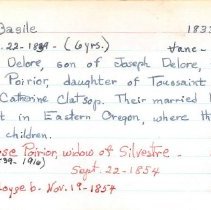 Basile 183
-22-1849- (6yrs.) Jane-
Delore, son of Joseph Delore,
Poirier, daughter of Toussaint
Catherine Clatsop. Their married l
t in Eastern Oregon, where th
children.
ose Poirier, widow of Silvestre -
39-1916) Sept. 22-1854
Loyse b. Nov. 19-1854